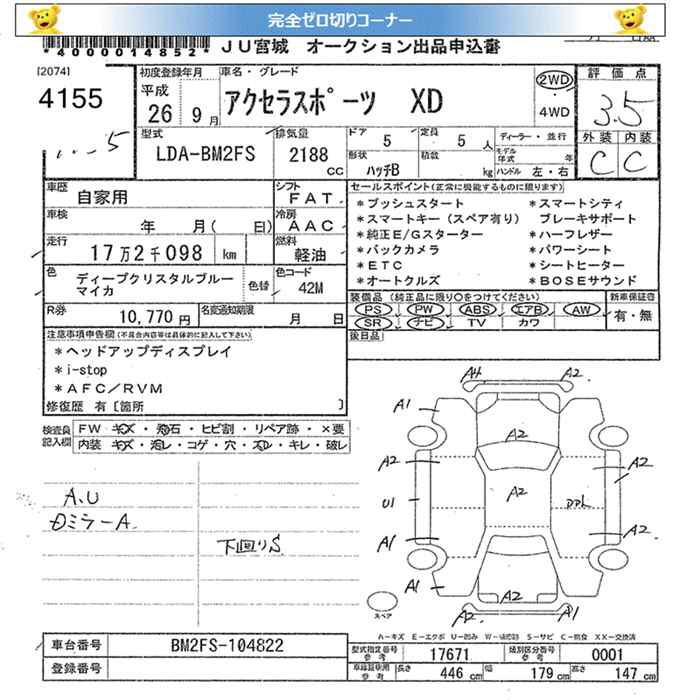 完全ゼロ切りコーナー
*4000014852*
JU宮城 オークション出品申込書
[2074]
4155
初度登録年月 平成 26年 9月
車名・グレード アクセラスポーツ XD
2WD・4WD
評価点 3.5
外装 C 内装 C
型式 LDA-BM2FS
排気量 2188 CC
ドア 5
定員 5 人
形状 ハッチB
積載 kg
ディーラー・並行
モデル年式 年
ハンドル 左・右
車歴 自家用
シフト FAT
車検 年 月( 日)
冷房 AAC
走行 17万2千098 km
燃料 軽油
色 ディープクリスタルブルーマイカ
色替
色コード 42M
R券 10,770円
名変通知期限 月 日
セールスポイント(正常に機能するものに限ります)
*プッシュスタート *スマートシティ
*スマートキー(スペア有り) ブレーキサポート
*純正E/Gスターター *ハーフレザー
*バックカメラ *パワーシート
*ETC *シートヒーター
*オートクルズ *BOSEサウンド
装備品(純正品に限り○をつけてください)
PS PW ABS エアB AW
SR ナビ TV カワ
新車保証書 有・無
後日品
注意事項申告欄(不具合内容等は具体的に記入して下さい)
*ヘッドアップディスプレイ
*i-stop
*AFC/RVM
修復歴 有[箇所 ]
検査員記入欄
FW キズ・飛石・ヒビ割・リペア跡・×要
内装 キズ・汚レ・コゲ・穴・スレ・キレ・破レ
A.U
ミラーA.
下回りS
A4 A2
A1 A2 A1
A2 A2 A2
U1
A1 A2
A1 A2
A2 A1
スペア
A-キズ E-エクボ U-凹み S-サビ C-腐食 XX-交換済
車台番号 BM2FS-104822
登録番号
型式指定番号 参考 17671
類別区分番号 参考 0001
参考 長さ 446 cm 幅 179 cm 高さ 147 cm